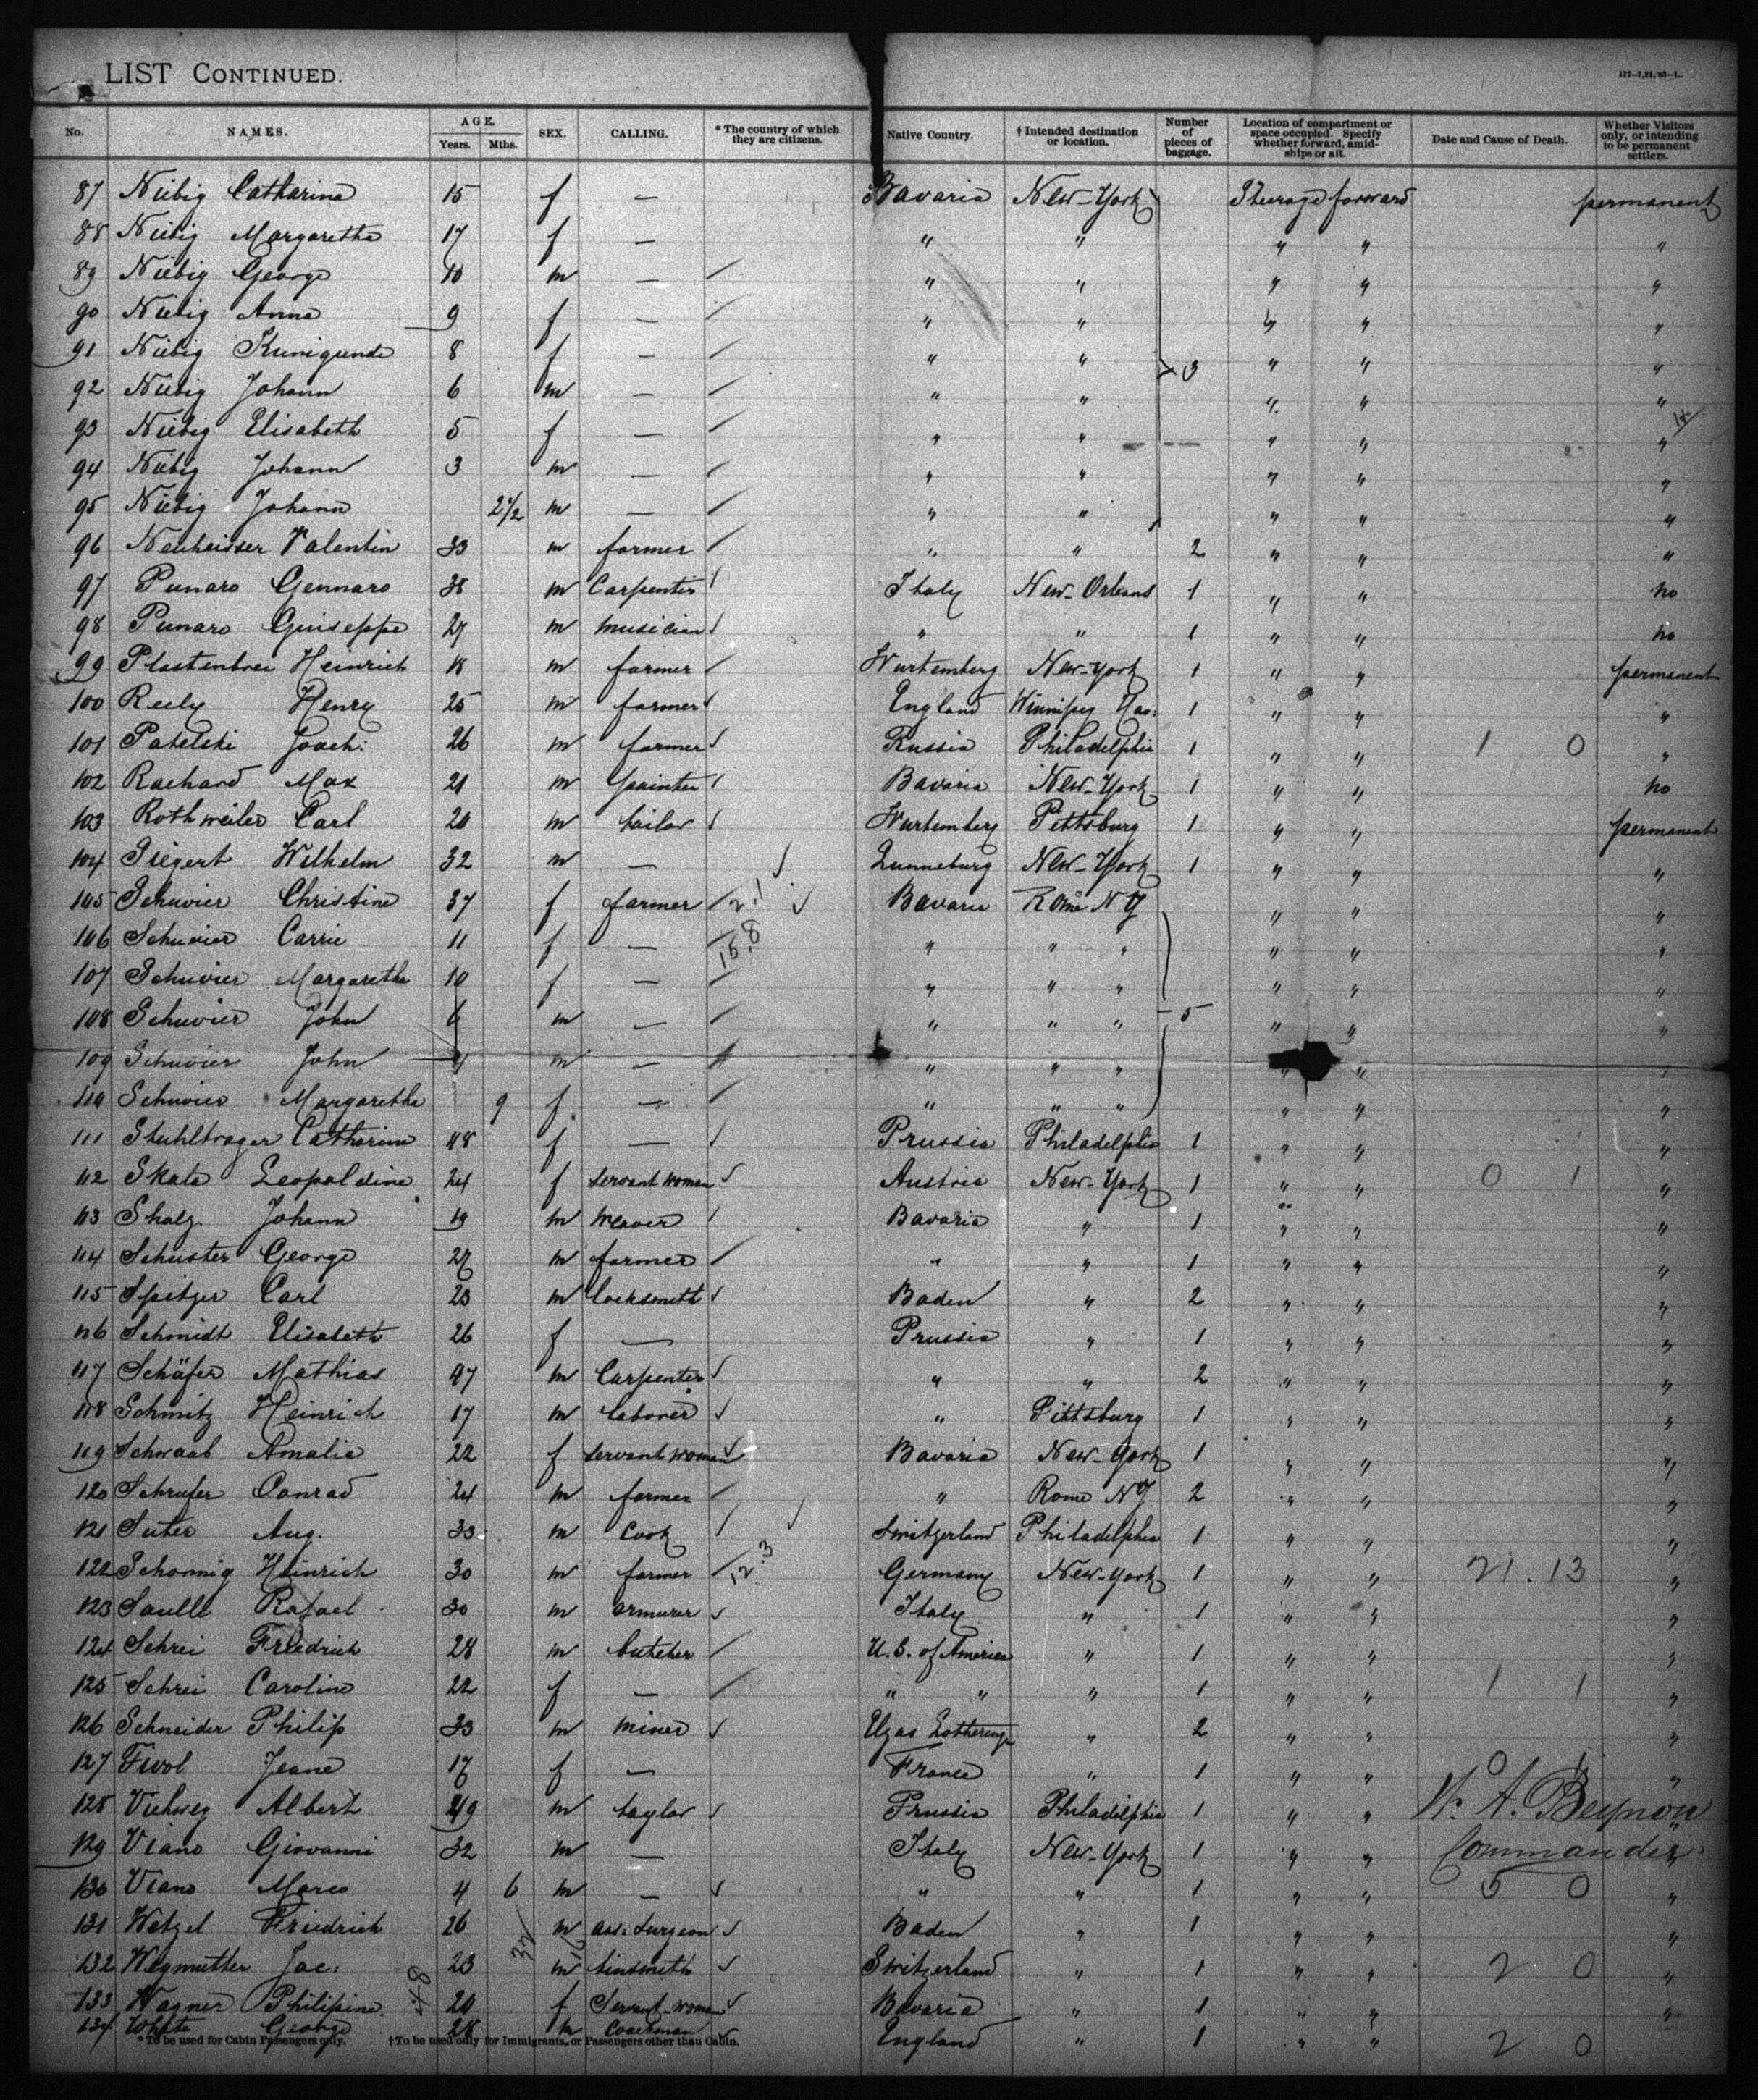 LIST CONTINUED.
117-7,21,'93-1.
No. NAMES. AGE. Years. Mths. SEX. CALLING. * The country of which they are citizens. Native Country. † Intended destination or location. Number of pieces of baggage. Location of compartment or space occupied. Specify whether forward, amidships or aft. Date and Cause of Death. Whether Visitors only, or intending to be permanent settlers.
87 Niebig Catharina 15 f — Bavaria New-York Steerage forward permanent
88 Niebig Margaretha 17 f — " " " " "
89 Niebig George 10 m — " " " " "
90 Niebig Anna 9 f — " " " " "
91 Niebig Kunigunde 8 f — " " 3 " " "
92 Niebig Johann 6 m — " " " " "
93 Niebig Elisabeth 5 f — " " " " "
94 Niebig Johann 3 m — " " " " "
95 Niebig Johann 2 1/2 m — " " " " "
96 Neuheisser Valentin 33 m farmer " " 2 " " "
97 Punaro Gennaro 38 m Carpenter Italy New-Orleans 1 " " no
98 Punaro Guiseppe 27 m musician " " 1 " " no
99 Plastenbrei Heinrich 18 m farmer Wurtemberg New-York 1 " " permanent
100 Reely Henry 25 m farmer England Winnipeg 1 " " "
101 Patelski Joach: 26 m farmer Russia Philadelphia 1 " " 1 0 "
102 Rachard Max 21 m painter Bavaria New-York 1 " " no
103 Rothweiler Carl 20 m tailor Wurtemberg Pittsburg 1 " " permanent
104 Siegert Wilhelm 32 m — Lunneburg New-York 1 " " "
105 Schuvier Christine 37 f farmer 2.1 Bavaria Rome N Y " " "
106 Schuvier Carrie 11 f — 15.8 " " " " " "
107 Schuvier Margaretha 10 f — " " " " " "
108 Schuvier John 6 m — " " " 5 " " "
109 Schuvier John 4 m — " " " " " "
110 Schuvier Margaretha 9 f — " " " " " "
111 Stuhltrager Catharine 48 f — Prussia Philadelphia 1 " " "
112 Skata Leopoldine 24 f servant woman Austria New-York 1 " " 0 1 "
113 Shalz Johann 19 m weaver Bavaria " 1 " " "
114 Schuster George 27 m farmer " " 1 " " "
115 Spitzer Carl 23 m locksmith Baden " 2 " " "
116 Schmidt Elisabeth 26 f — Prussia " 1 " " "
117 Schäfer Mathias 47 m Carpenter " " 2 " " "
118 Schmitz Heinrich 17 m laborer " Pittsburg 1 " " "
119 Schwaab Amalia 22 f servant woman Bavaria New-York 1 " " "
120 Schrufer Conrad 24 m farmer " Rome NY 2 " " "
121 Suter Aug. 33 m Cook Switzerland Philadelphia 1 " " "
122 Schomig Heinrich 30 m farmer 12.3 Germany New-York 1 " " 21.13 "
123 Saulle Rafael 30 m armurer Italy " 1 " " "
124 Schrei Friedrich 28 m butcher U.S. of America " 1 " " "
125 Schrei Caroline 22 f — " " " 1 " " 1 1 "
126 Schneider Philip 33 m miner Elzas Lotheringe " 2 " " "
127 Tivol Jeane 17 f — France " 1 " " 0 1 "
128 Viehweg Albert 49 m taylor Prussia Philadelphia 1 " " W. A. Beynon "
129 Viano Giovanni 32 m — Italy New-York 1 " " Commander. "
130 Viano Marco 4 6 m — " " 1 " " 5 0 "
131 Wetzel Friedrich 26 m ass: surgeon Baden " 1 " " "
132 Wegmuther Jac: 23 m tinsmith Switzerland " 1 " " 2 0 "
133 Wagner Philipine 20 f Servant-woman Bavaria " 1 " " "
134 White George 28 m Coachman England " 1 " " 2 0
* To be used for Cabin Passengers only. † To be used only for Immigrants, or Passengers other than Cabin.